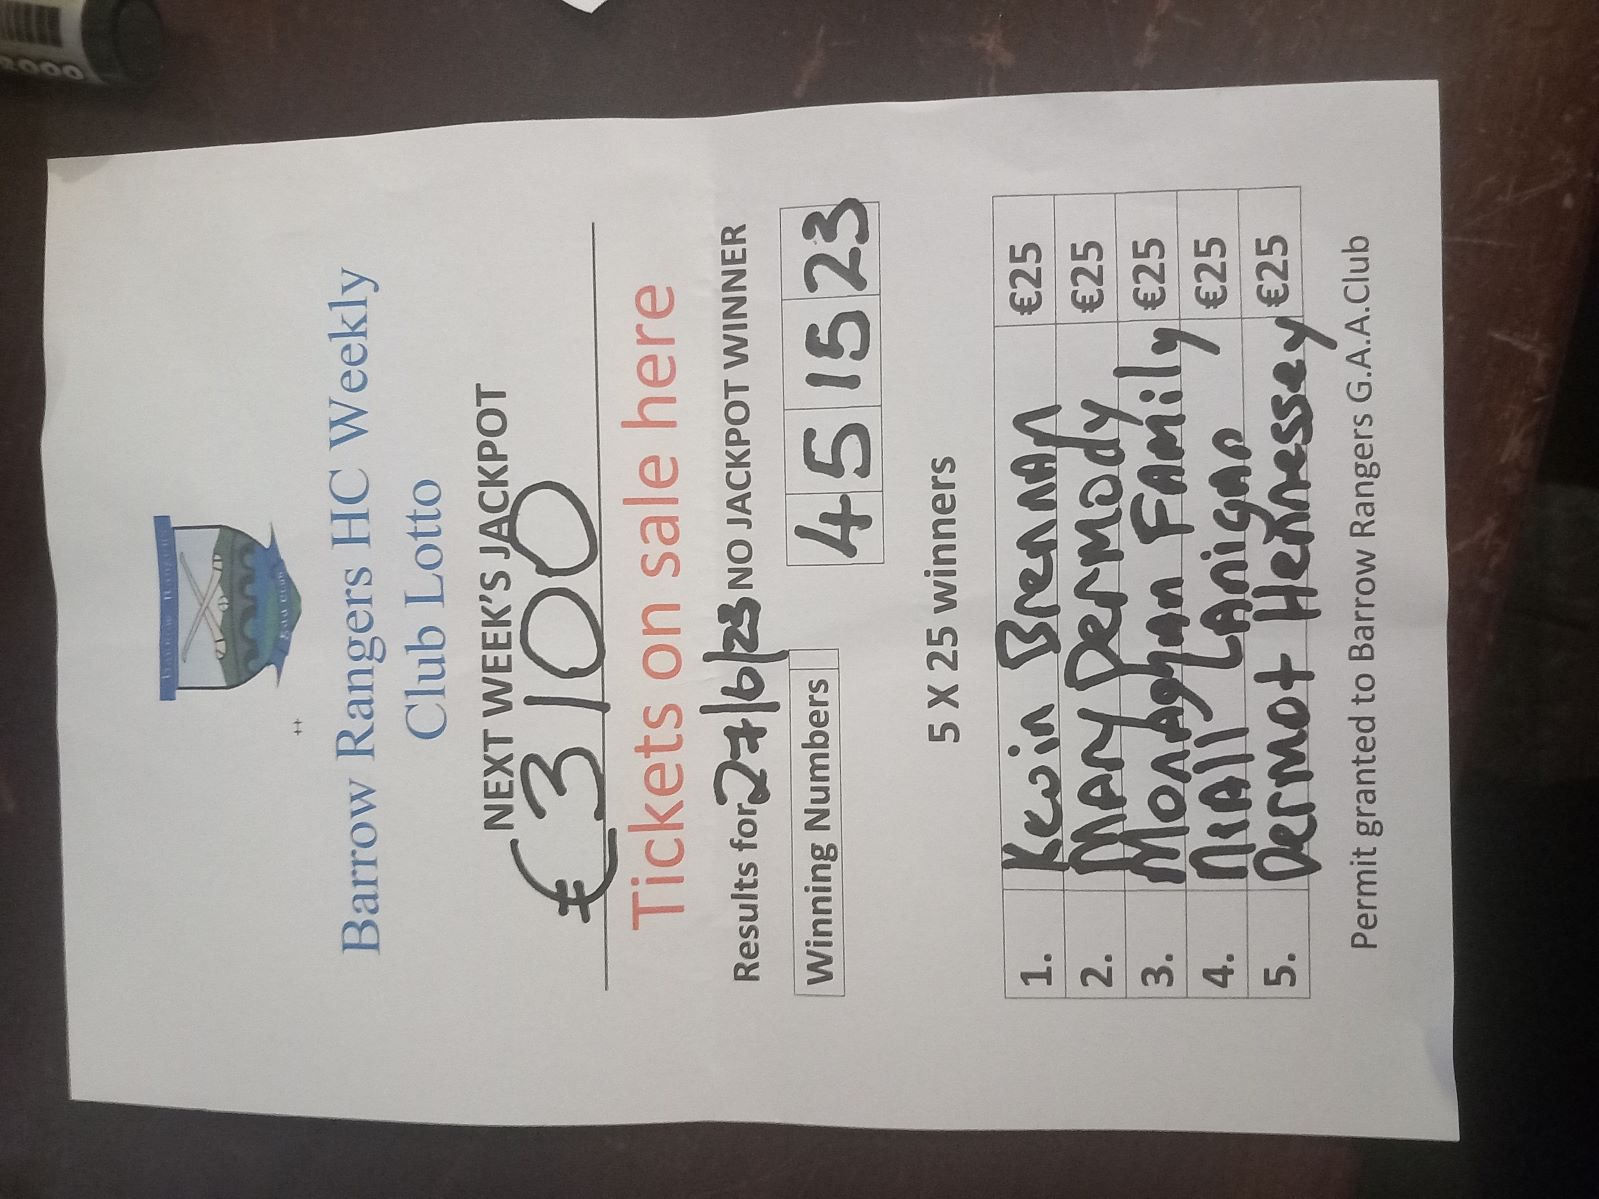 Barrow Rangers HC Weekly
Club Lotto
NEXT WEEK'S JACKPOT
€3100
Tickets on sale here
Results for 27/6/23 NO JACKPOT WINNER
Winning Numbers 4 5 15 23
5 X 25 winners
1. Kevin Brennan €25
2. Mary Dermody €25
3. Monaghan Family €25
4. Niall Lanigan €25
5. Dermot Hennessey €25
Permit granted to Barrow Rangers G.A.A.Club